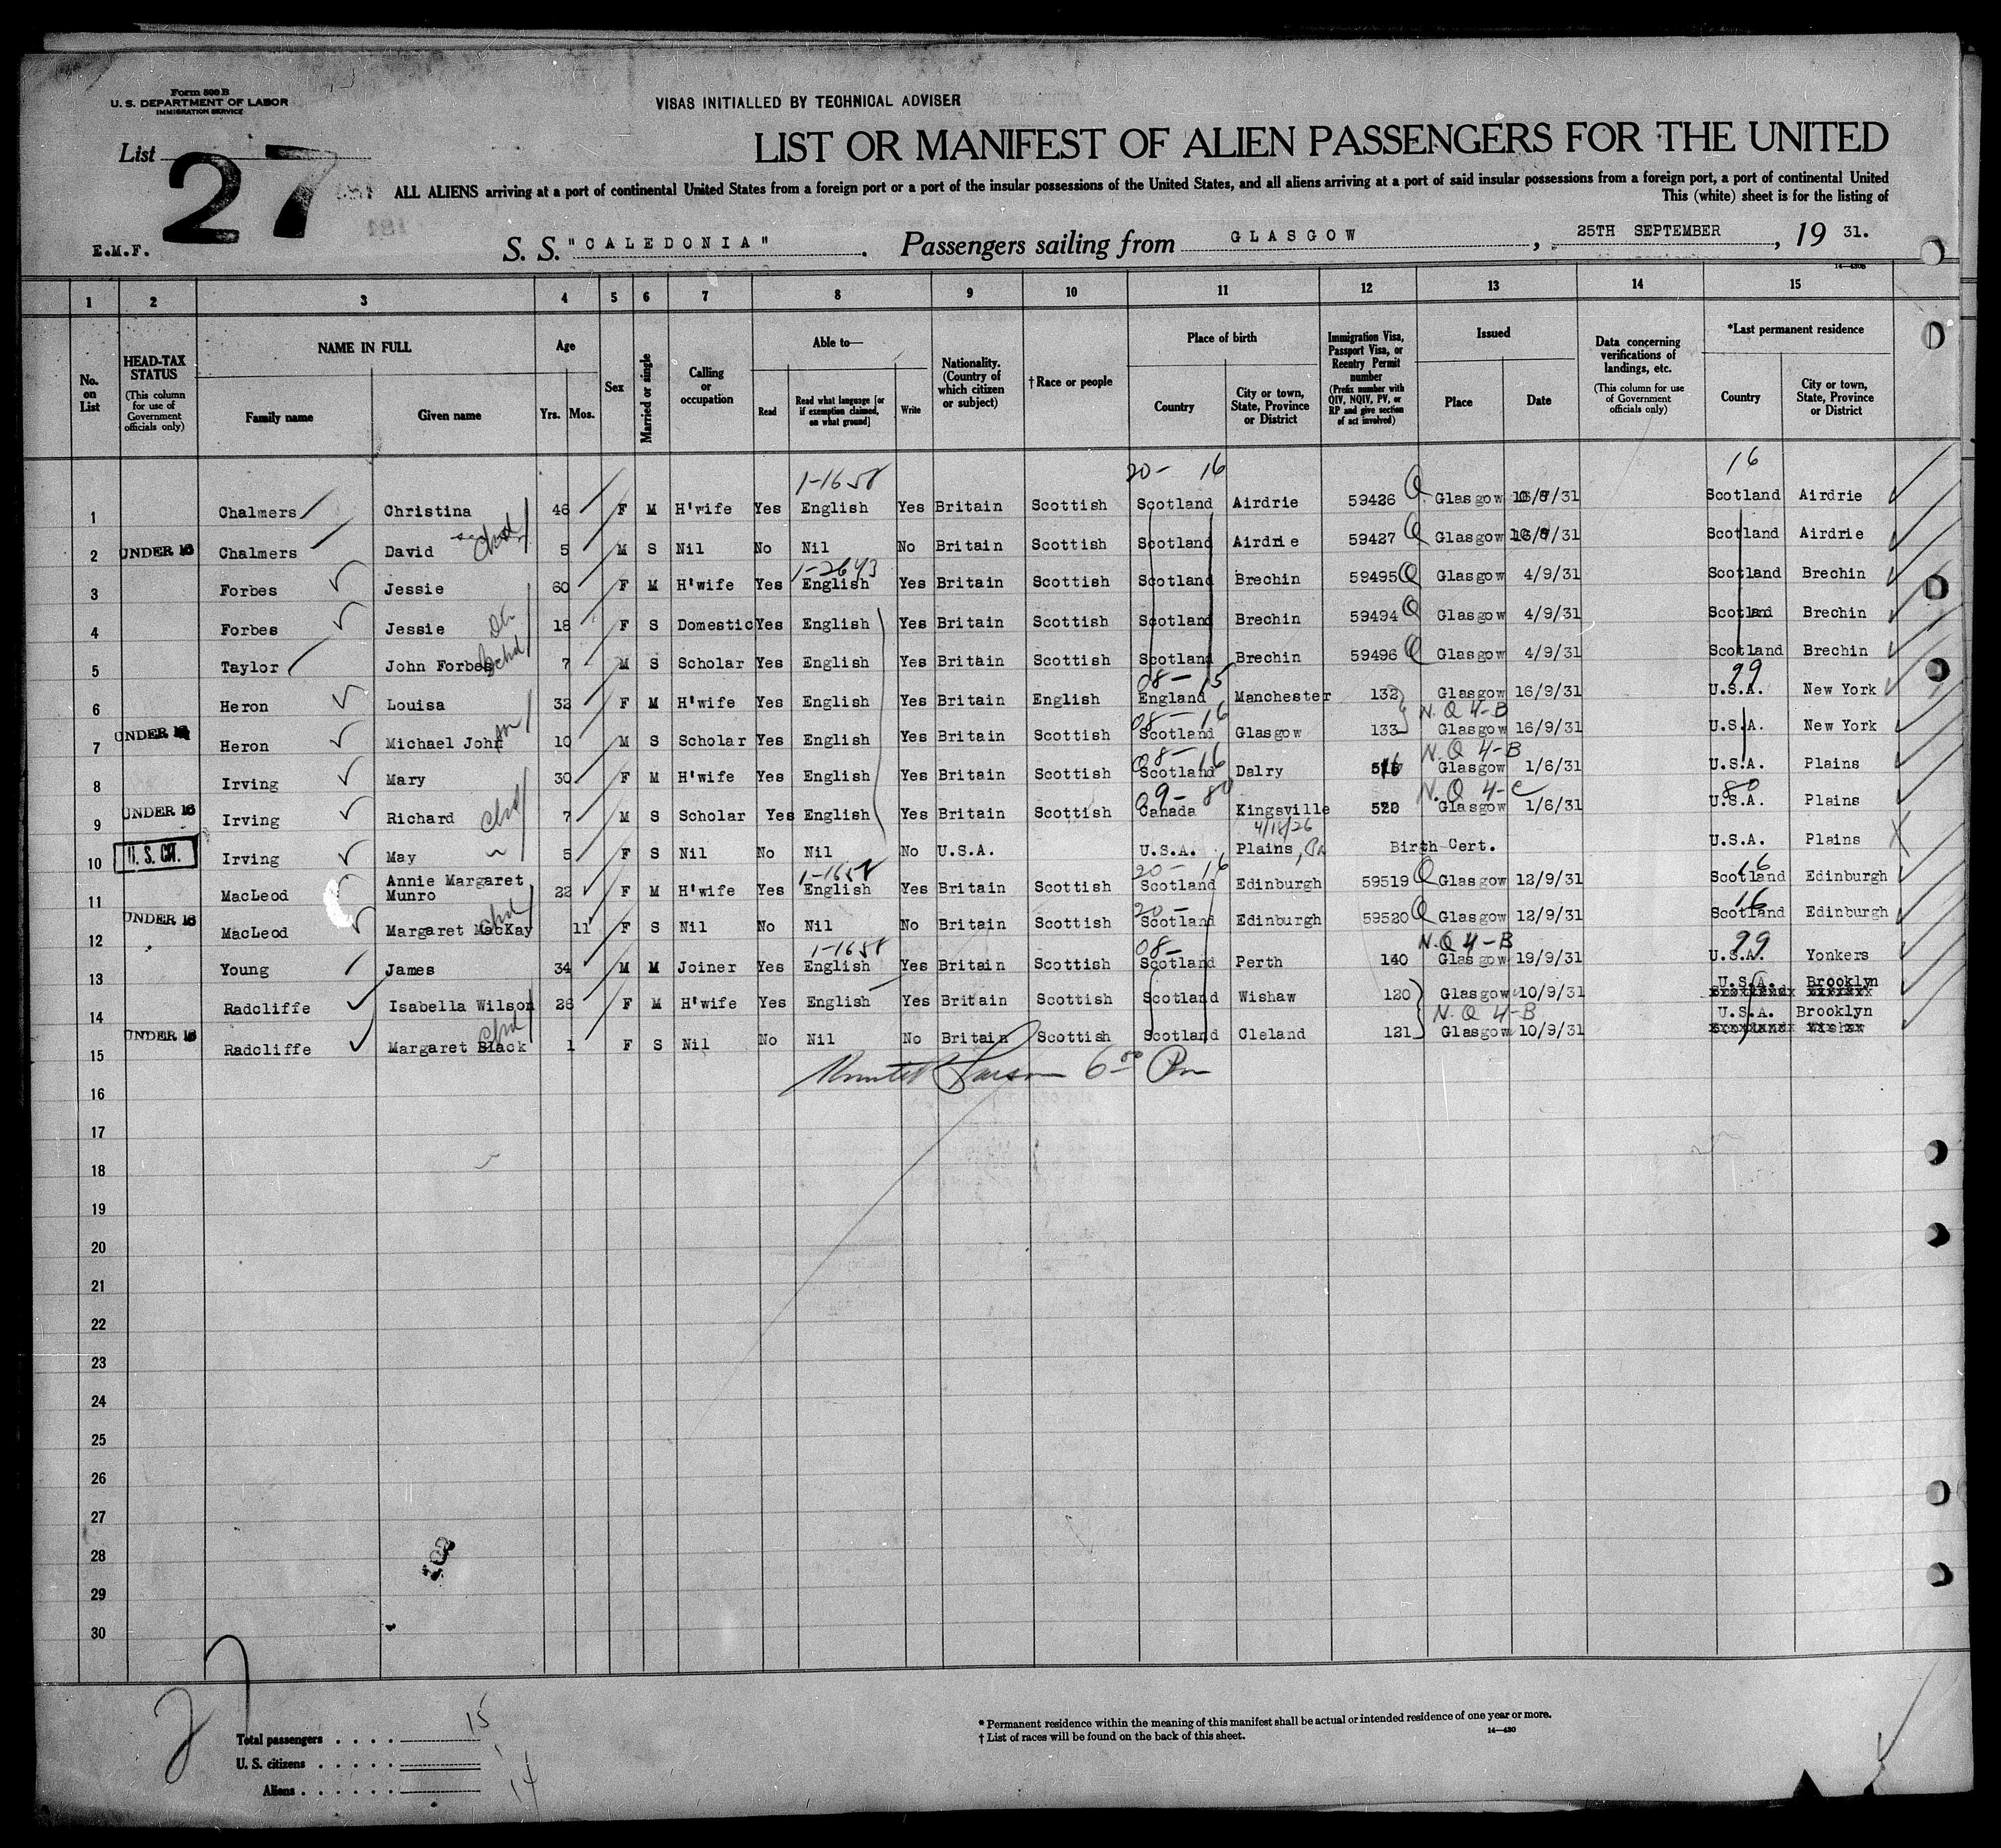 Form 500 B
U. S. DEPARTMENT OF LABOR
IMMIGRATION SERVICE
VISAS INITIALLED BY TECHNICAL ADVISER
List 27
LIST OR MANIFEST OF ALIEN PASSENGERS FOR THE UNITED
ALL ALIENS arriving at a port of continental United States from a foreign port or a port of the insular possessions of the United States, and all aliens arriving at a port of said insular possessions from a foreign port, a port of continental United
This (white) sheet is for the listing of
E.M.F.
S. S. "CALEDONIA". Passengers sailing from GLASGOW, 25TH SEPTEMBER, 19 31.
1 2 3 4 5 6 7 8 9 10 11 12 13 14 15
No. on List
HEAD-TAX STATUS
(This column for use of Government officials only)
NAME IN FULL
Family name
Given name
Age
Yrs. Mos.
Sex
Married or single
Calling or occupation
Able to—
Read
Read what language [or if exemption claimed, on what ground]
Write
Nationality. (Country of which citizen or subject)
† Race or people
Place of birth
Country
City or town, State, Province or District
Immigration Visa, Passport Visa, or Reentry Permit number
(Prefix number with QIV, NQIV, PV, or RP and give section of act involved)
Issued
Place
Date
Data concerning verifications of landings, etc.
(This column for use of Government officials only)
*Last permanent residence
Country
City or town, State, Province or District
1-1658 20- 16 16
1 Chalmers Christina 46 F M H'wife Yes English Yes Britain Scottish Scotland Airdrie 59426 Q Glasgow /31 Scotland Airdrie
2 UNDER 16 Chalmers David chd 5 M S Nil No Nil No Britain Scottish Scotland Airdrie 59427 Q Glasgow /31 Scotland Airdrie
1-2643
3 Forbes Jessie 60 F M H'wife Yes English Yes Britain Scottish Scotland Brechin 59495 Q Glasgow 4/9/31 Scotland Brechin
4 Forbes Jessie 18 F S Domestic Yes English Yes Britain Scottish Scotland Brechin 59494 Q Glasgow 4/9/31 Scotland Brechin
5 Taylor John Forbes chd 7 M S Scholar Yes English Yes Britain Scottish Scotland Brechin 59496 Q Glasgow 4/9/31 Scotland Brechin
08- 15 99
6 Heron Louisa 32 F M H'wife Yes English Yes Britain English England Manchester 132 Glasgow 16/9/31 U.S.A. New York
08- 16 N.Q 4-B
7 UNDER 16 Heron Michael John 10 M S Scholar Yes English Yes Britain Scottish Scotland Glasgow 133 Glasgow 16/9/31 U.S.A. New York
08- 16 N.Q 4-B
8 Irving Mary 30 F M H'wife Yes English Yes Britain Scottish Scotland Dalry 516 Glasgow 1/6/31 U.S.A. Plains
09- 80 N.Q 4-C 80
9 UNDER 16 Irving Richard chd 7 M S Scholar Yes English Yes Britain Scottish Canada Kingsville 520 Glasgow 1/6/31 U.S.A. Plains
4/18/26
10 U. S. CIT. Irving May 5 F S Nil No Nil No U.S.A. U.S.A. Plains, Pa Birth Cert. U.S.A. Plains
1-1658 20- 16 16
11 MacLeod Annie Margaret Munro 22 F M H'wife Yes English Yes Britain Scottish Scotland Edinburgh 59519 Q Glasgow 12/9/31 Scotland Edinburgh
20- 16
12 UNDER 16 MacLeod Margaret MacKay chd 11 F S Nil No Nil No Britain Scottish Scotland Edinburgh 59520 Q Glasgow 12/9/31 Scotland Edinburgh
1-1658 08- N.Q 4-B 99
13 Young James 34 M M Joiner Yes English Yes Britain Scottish Scotland Perth 140 Glasgow 19/9/31 U.S.A. Yonkers
14 Radcliffe Isabella Wilson 26 F M H'wife Yes English Yes Britain Scottish Scotland Wishaw 120 Glasgow 10/9/31 U.S.A. Brooklyn
N.Q 4-B
15 UNDER 16 Radcliffe Margaret Black chd 1 F S Nil No Nil No Britain Scottish Scotland Cleland 121 Glasgow 10/9/31 U.S.A. Brooklyn
16
17
18
19
20
21
22
23
24
25
26
27
28
29
30
27
Total passengers . . . . 15
U. S. citizens . . . . .
Aliens . . . . . . 14
* Permanent residence within the meaning of this manifest shall be actual or intended residence of one year or more.
† List of races will be found on the back of this sheet.
14—430